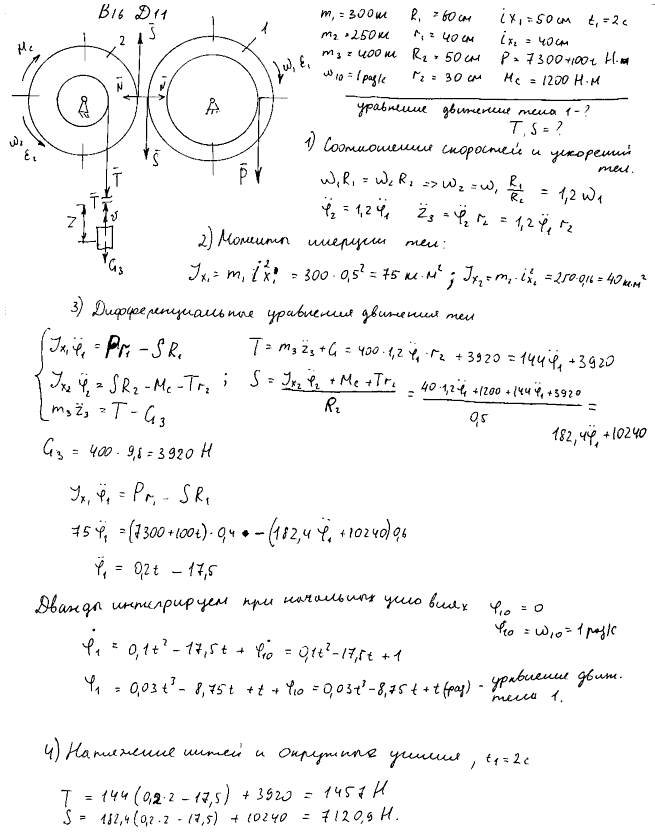 В16 Д11
m₁=300кг R₁=60см ix₁=50см t₁=2с
m₂=250кг r₁=40см ix₂=40см
m₃=400кг R₂=50см P=7300+100t Н·м
ω₁₀=1рад/с r₂=30см Mc=1200Н·м
уравнение движения тела 1-?
T, S=?
Mc 2 S̄ 1 ω₁ ε₁
N̄ N̄
ω₂ ε₂ T̄ S̄ P̄
T̄
Z v̄
G₃
1) Соотношения скоростей и ускорений тел.
ω₁R₁ = ω₂R₂ => ω₂ = ω₁ R₁/R₂ = 1,2ω₁
φ̈₂ = 1,2φ̈₁ z̈₃ = φ̈₂ r₂ = 1,2φ̈₁ r₂
2) Моменты инерции тел:
Jx₁ = m₁ i²x₁ = 300·0,5² = 75 кг·м² ; Jx₂ = m₂·i²x₂ = 250·0,16 = 40 кг·м²
3) Дифференциальные уравнения движения тел
Jx₁φ̈₁ = Pr₁ - SR₁ T = m₃z̈₃ + G = 400·1,2φ̈₁·r₂ + 3920 = 144φ̈₁ + 3920
Jx₂φ̈₂ = SR₂ - Mc - Tr₂ ; S = (Jx₂φ̈₂ + Mc + Tr₂)/R₂ = (40·1,2φ̈₁ + 1200 + 144φ̈₁ + 3920)/0,5 =
m₃z̈₃ = T - G₃
182,4φ̈₁ + 10240
G₃ = 400·9,8 = 3920 Н
Jx₁φ̈₁ = Pr₁ - SR₁
75φ̈₁ = (7300+100t)·0,4 - (182,4φ̈₁ + 10240)0,6
φ̈₁ = 0,2t - 17,5
Дважды интегрируем при начальных условиях φ₁₀ = 0
φ̇₁₀ = ω₁₀ = 1рад/с
φ̇₁ = 0,1t² - 17,5t + φ̇₁₀ = 0,1t² - 17,5t + 1
φ₁ = 0,03t³ - 8,75t + t + φ₁₀ = 0,03t³ - 8,75t + t(рад) - уравнение движ. тела 1.
4) Натяжение нитей и окружные усилия, t₁=2с
T = 144(0,2·2 - 17,5) + 3920 = 1457 Н
S = 182,4(0,2·2 - 17,5) + 10240 = 7120,9 Н.